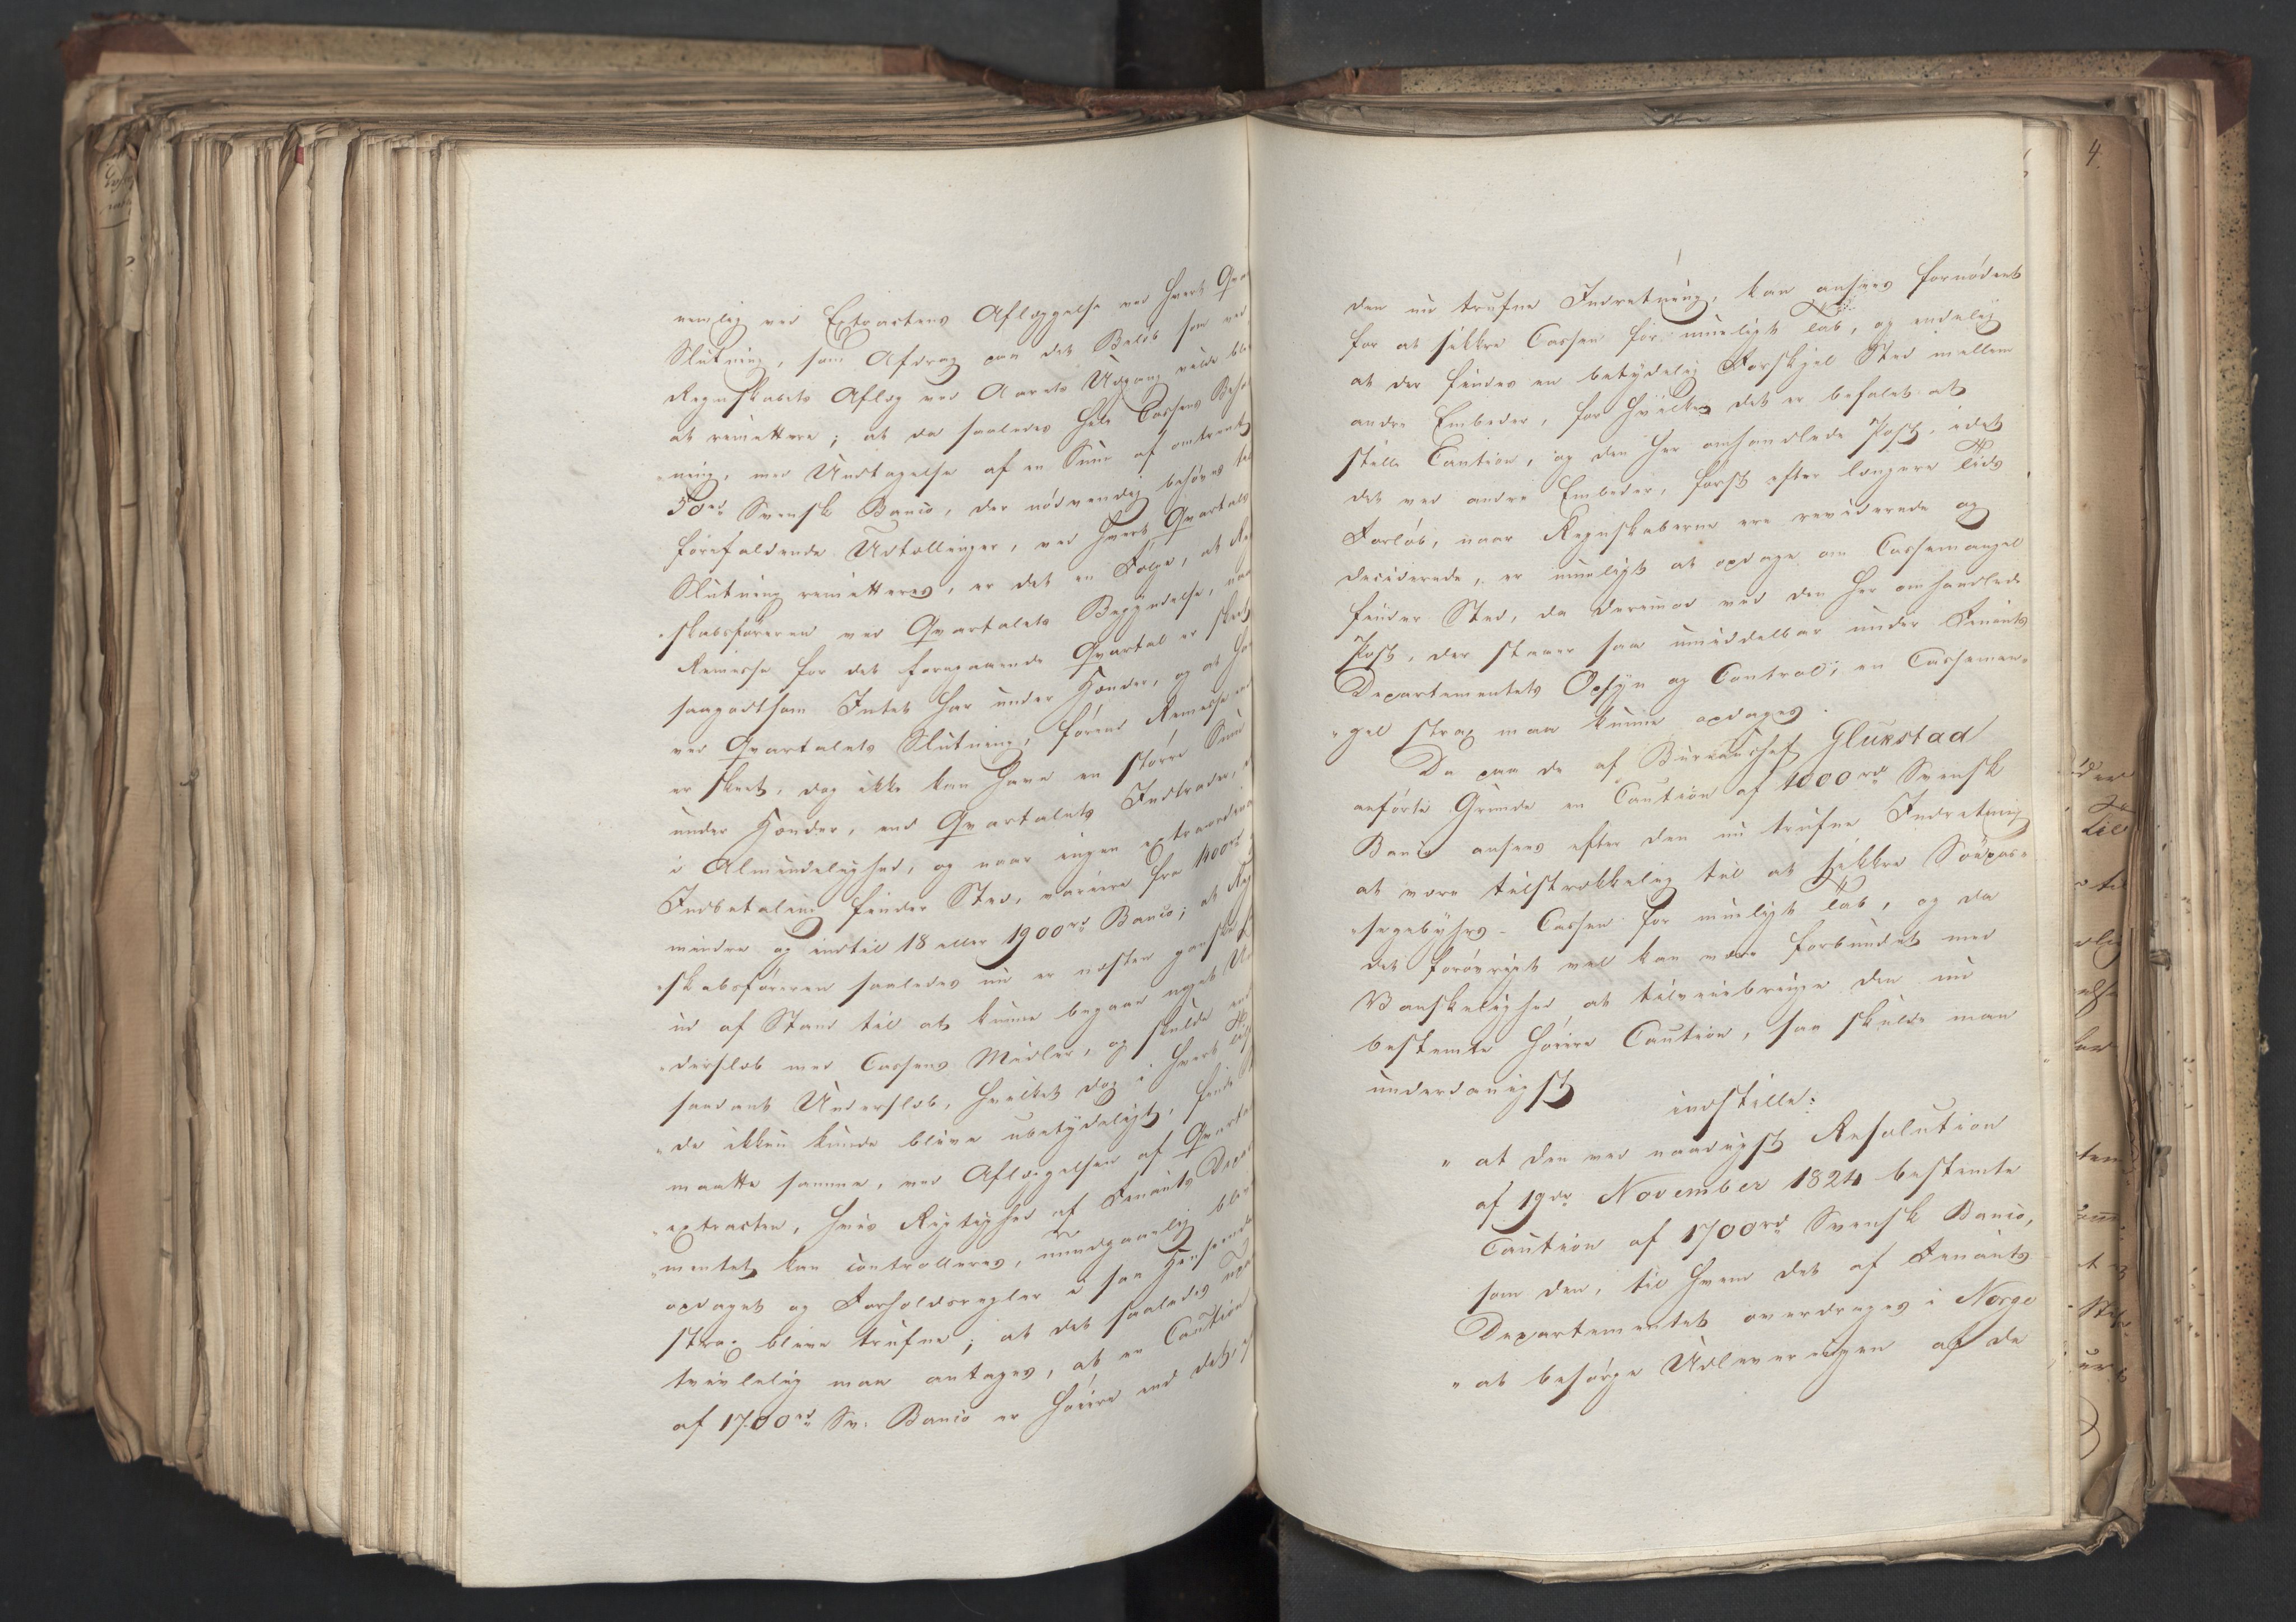 nemlig ved Extractens Aflæggelse ved hvert Qvar
Slutning, som Afdrag paa det Beløb som ved
Regnskabets Aflæg ved Aarets Udgang vilde bli
at remittere; at da saaledes hele Cassens Behold
"ning, med Undtagelse af en Sum af omtrent
50rd Svensk Banco, der nødvendig behøves til
forefaldende Udtællinger, ved hvert Qvartals
Slutning remitteres, er det en Følge, at Reg
"skabsføreren ved Qvartalets Begyndelse, naar
Remesse for det foregaaende Qvartal er skeet
saagodtsom Intet har under Hænder, og at han
ved Qvartalets Slutning, førend Remesse
er skeet, dog ikke kan have en større Sum
under Hænder, end Qvartalets Indtægter,
i Almindelighed, og naar ingen extraordinair
Indbetaling finder Sted, variere fra 1400rd
mindre og indtil 18 eller 1900rd Banco; at Regn
"skabsføreren saaledes nu er næsten ganske
ud af Stand til at kunne begaae noget Un
"derslæb med Cassens Midler, og skulde end
saadant Underslæb, hvilket dog i hvert Til
"de ikkun kunde blive ubetydeligt, finde St
maatte samme, ved Aflæggelsen af Qvartal
"extracten, hvis Rigtighed af Finants Depar
"mentet kan controlleres, uundgaaelig blive
opdaget og Forholdsregler i saa Henseende
strax blive trufne; at det saaledes
tvivlelig maa antages, at en Caution
af 1700rd Sv. Banco er høiere end det,
den nu trufne Indretning, kan ansees fornødent
for at sikkre Cassen for mueligt Tab, og endelig
at der findes en betydelig Forskjel Sted mellem
andre Embeder, for hvilke det er befalet at
stille Caution, og den her omhandlede Post, idet
det ved andre Embeder, først efter længere Tids
Forløb, naar Regnskaberne ere reviderede og
deciderede, er mueligt at opdage om Cassemangel
finder Sted, da derimod ved den her omhandlede
Post, der staaer saa umiddelbar under Finants
Departementets Opsyn og Control, en Casseman"
"gel strax maa kunne opdages.
Da paa de af Bureauchef Glükstad
anførte Grunde en Caution af 1000rd Svensk
Banco ansees efter den nu trufne Indretning
at være tilstrækkelig til at sikkre Søepas"
"segebyhrs-Cassen for mueligt Tab, og da
det forøvrigt vel kan være forbundet med
Vanskelighed at tilveiebringe den nu
bestemte høiere Caution, saa skulde man
underdanigst
indstille:
" at den ved naadigst Resolution
af 19de November 1824 bestemte
Caution af 1700rd Svensk Banco,
som den, til hvem det af Finants
Departementet overdrages i Norge
" at besørge Udleveringen af de
4.